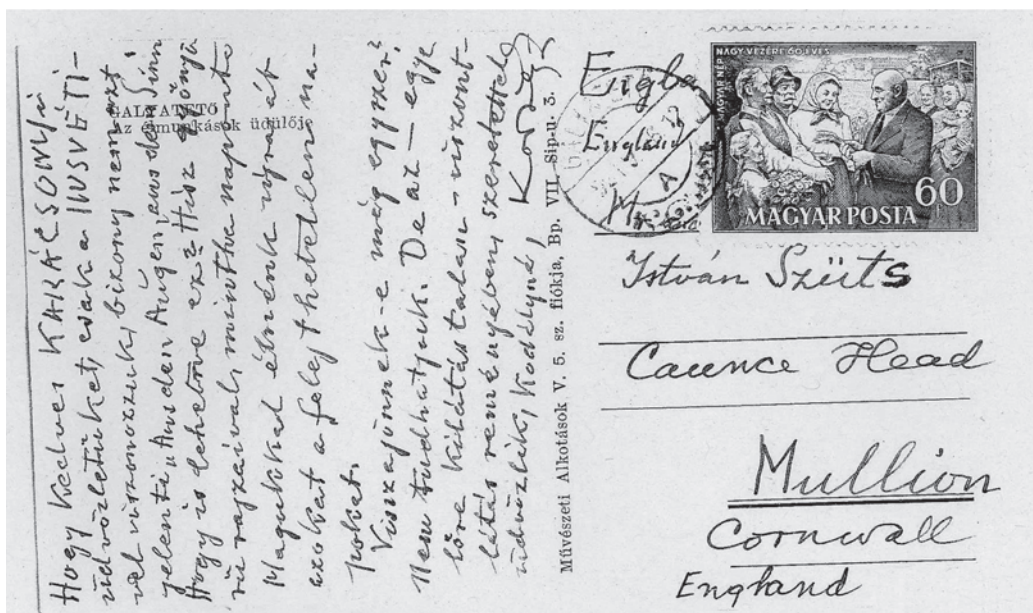 Hogy kedves KARÁCSONYI
üdvözletüket, csak a HUSVÉTI-
vel viszonozzuk, bizony nem azt
jelenti „Aus den Augen, aus dem Sinn
Hogy is lehetne ez? Husz gyönyö
rü rajzával, mintha naponta
Magukkal élnénk ujra át
azokat a felejthetetlen na-
pokat.
Visszajönnek-e még egyszer?
Nem tudhatjuk. De az – egye
lőre kilátástalan – viszont-
látás reményében szeretettel
üdvözlik, Kodályné,
Kodály
GALYATETŐ
Az élmunkások üdülője
Művészeti Alkotások V. 5. sz. fiókja, Bp. VII. Sip-u. 3.
England
MAGYAR NÉP NAGY VEZÉRE 60 ÉVES
60
MAGYAR POSTA
István Szüts
Caunce Head
Mullion
Cornwall
England